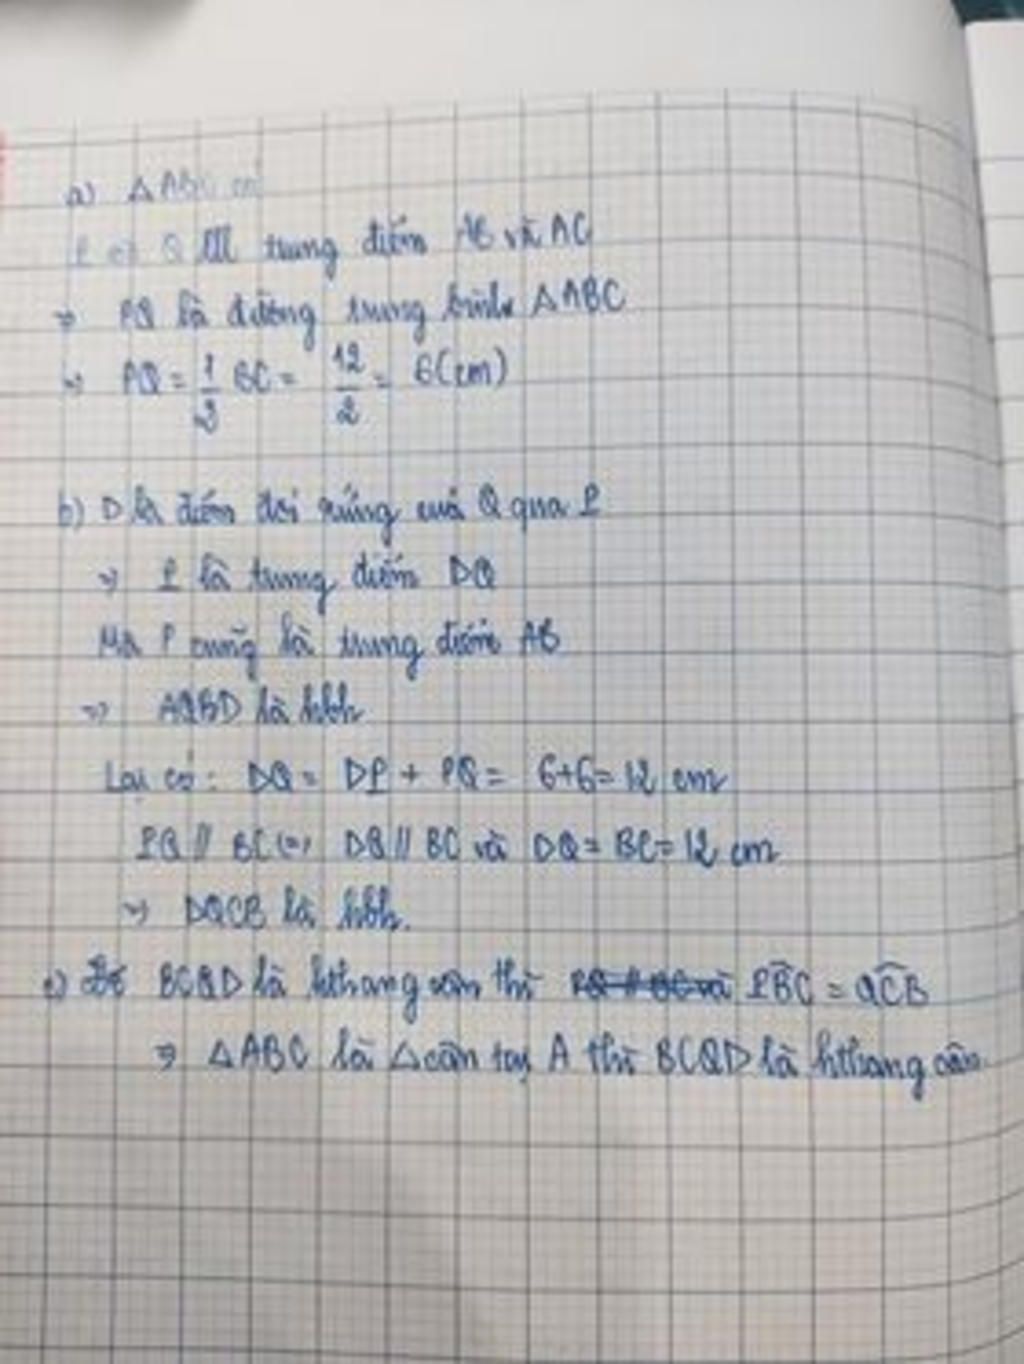 a) △ABC có
P và Q là trung điểm AB và AC
⇒ PQ là đường trung bình △ABC
⇒ PQ = 1/2 BC = 12/2 = 6(cm)
b) D là điểm đối xứng của Q qua P
⇒ P là trung điểm DQ
Mà P cũng là trung điểm AB
⇒ AQBD là hbh
Lại có: DQ = DP + PQ = 6+6=12 cm
PQ // BC ⇒ DQ // BC và DQ = BC = 12 cm
⇒ DQCB là hbh.
c) Để BCQD là hthang cân thì PQ // BC và P̂BC = QĈB
⇒ △ABC là △cân tại A thì BCQD là hthang cân.